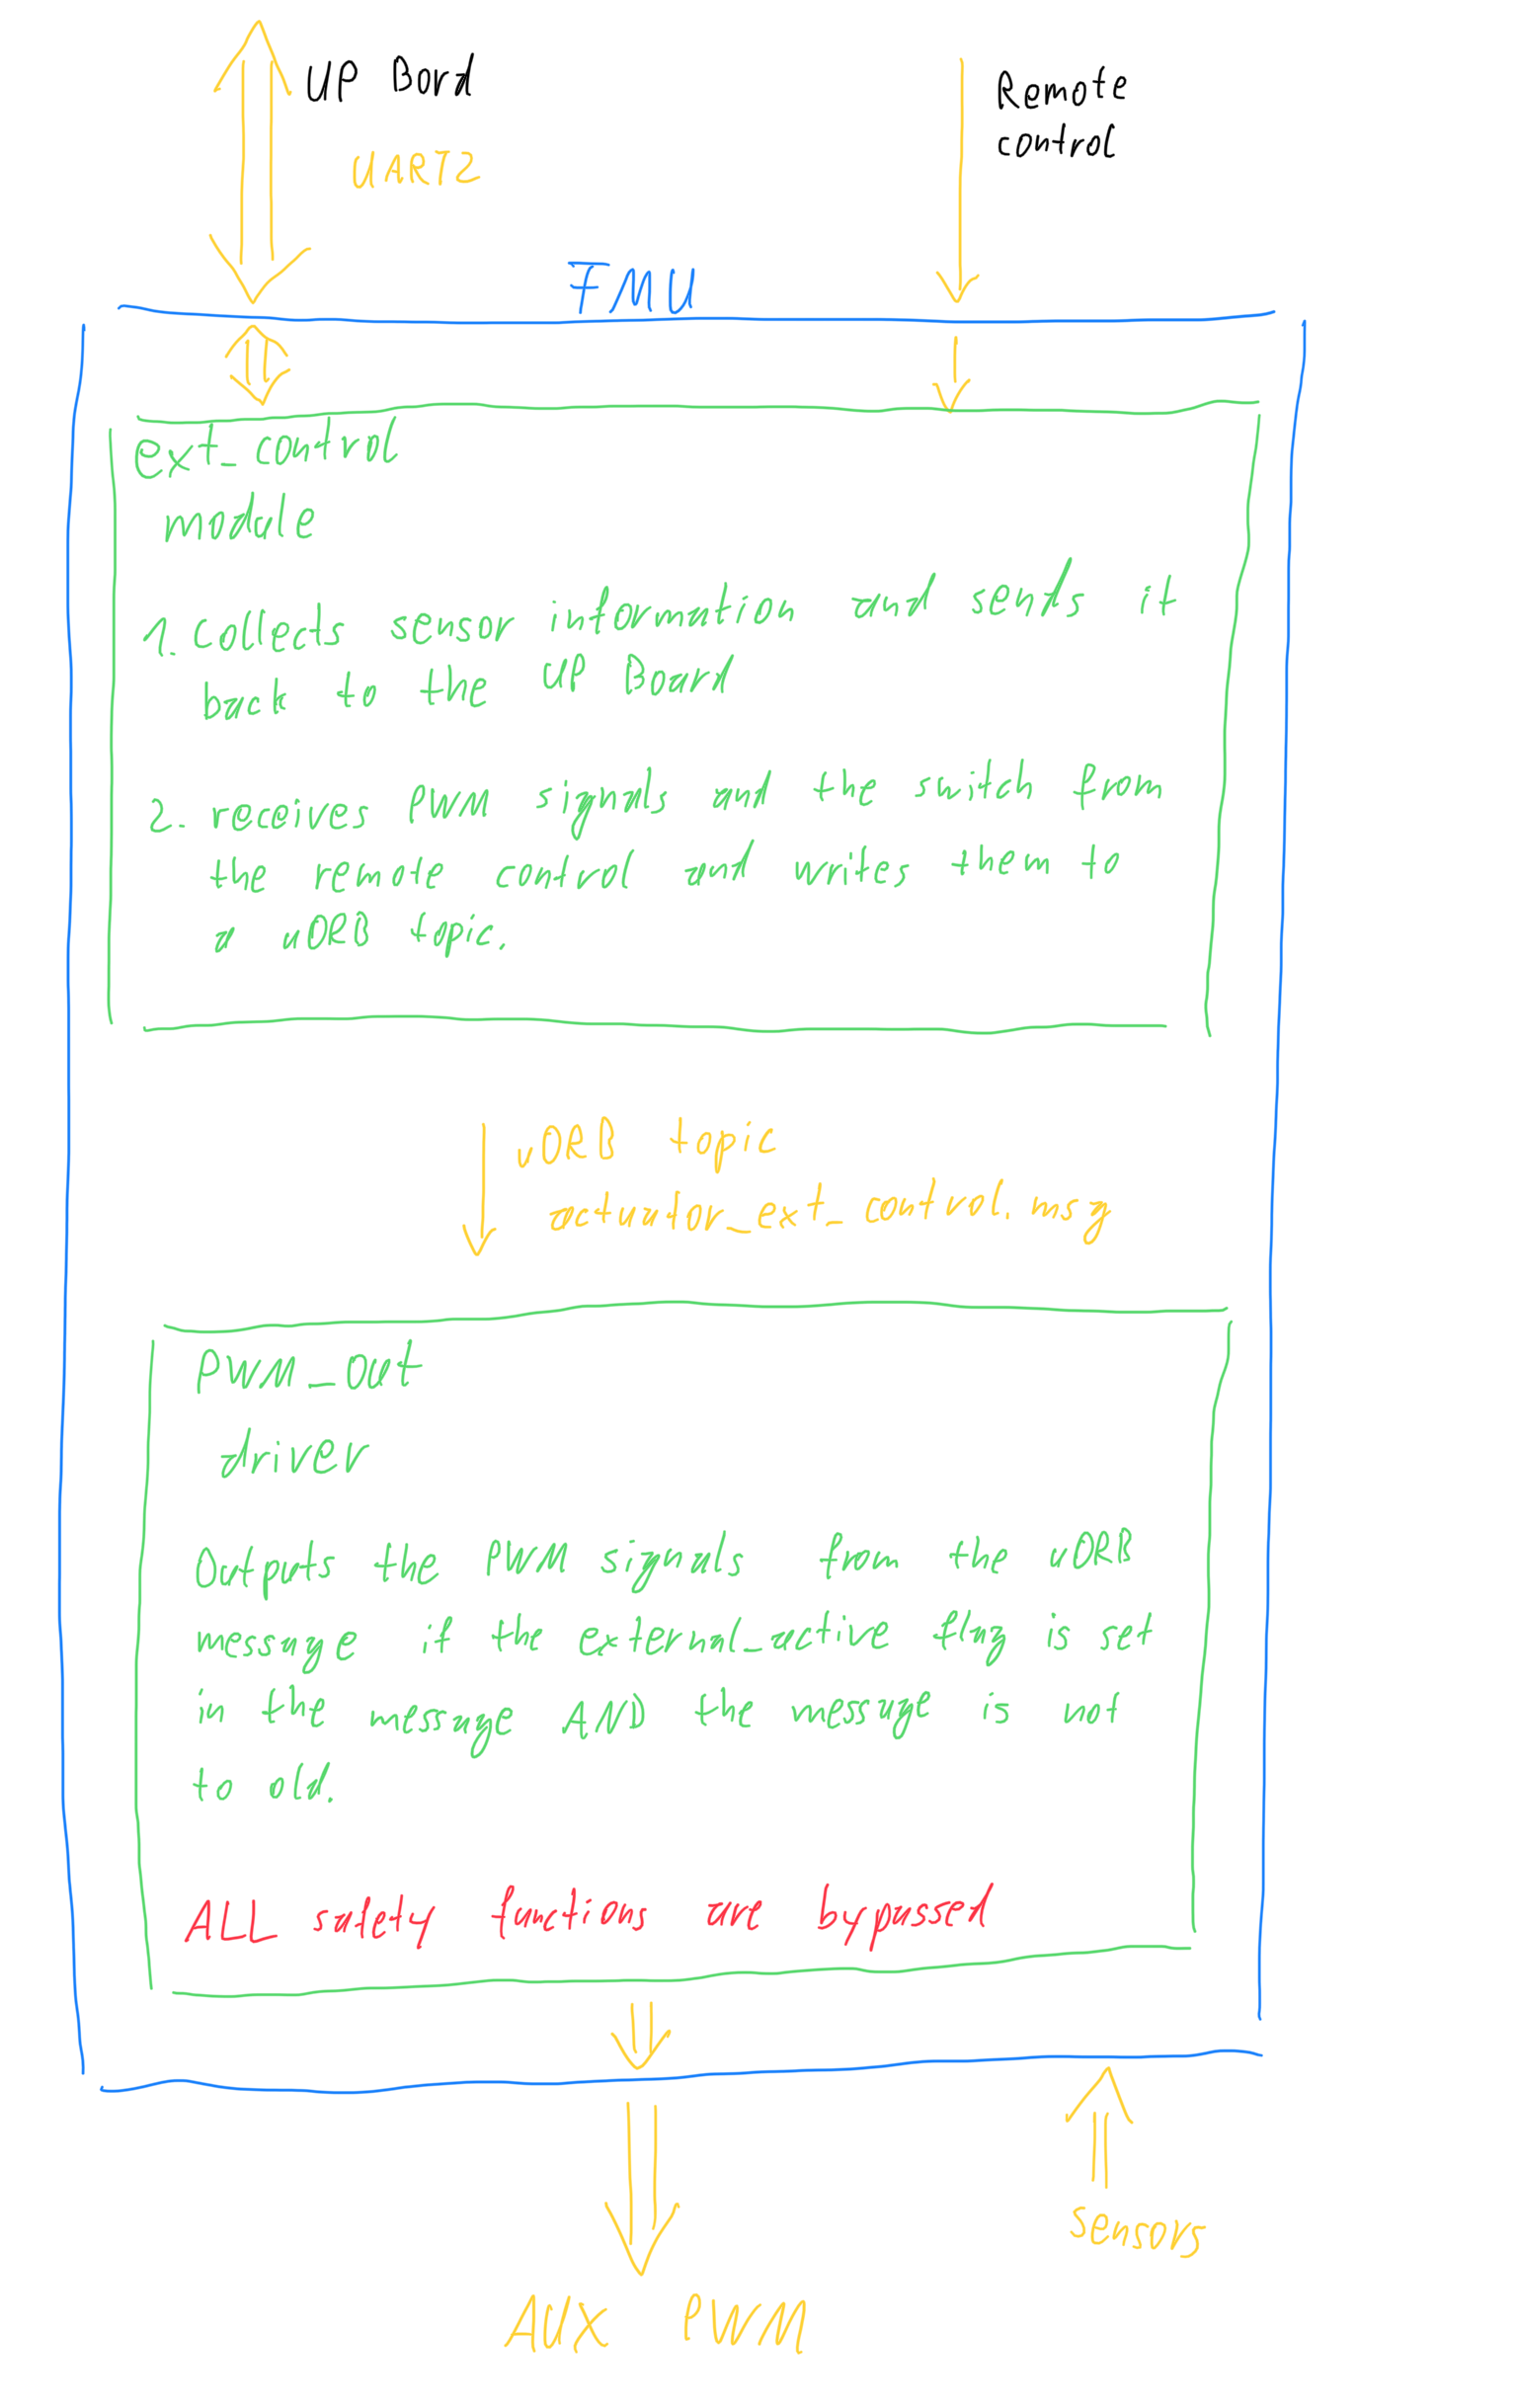 UP Bord
UART2
Remote
control
FMU
ext_control
module
1. Collects sensor information and sends it
back to the UP Board
2. receives PWM signals and the switch from
the remote control and writes them to
a uORB topic.
uORB topic
actuator_ext_control.msg
PWM_out
driver
Outputs the PWM signals from the uORB
message if the external_active flag is set
in the message AND the message is not
to old.
ALL safety functions are bypassed
sensors
AUX PWM